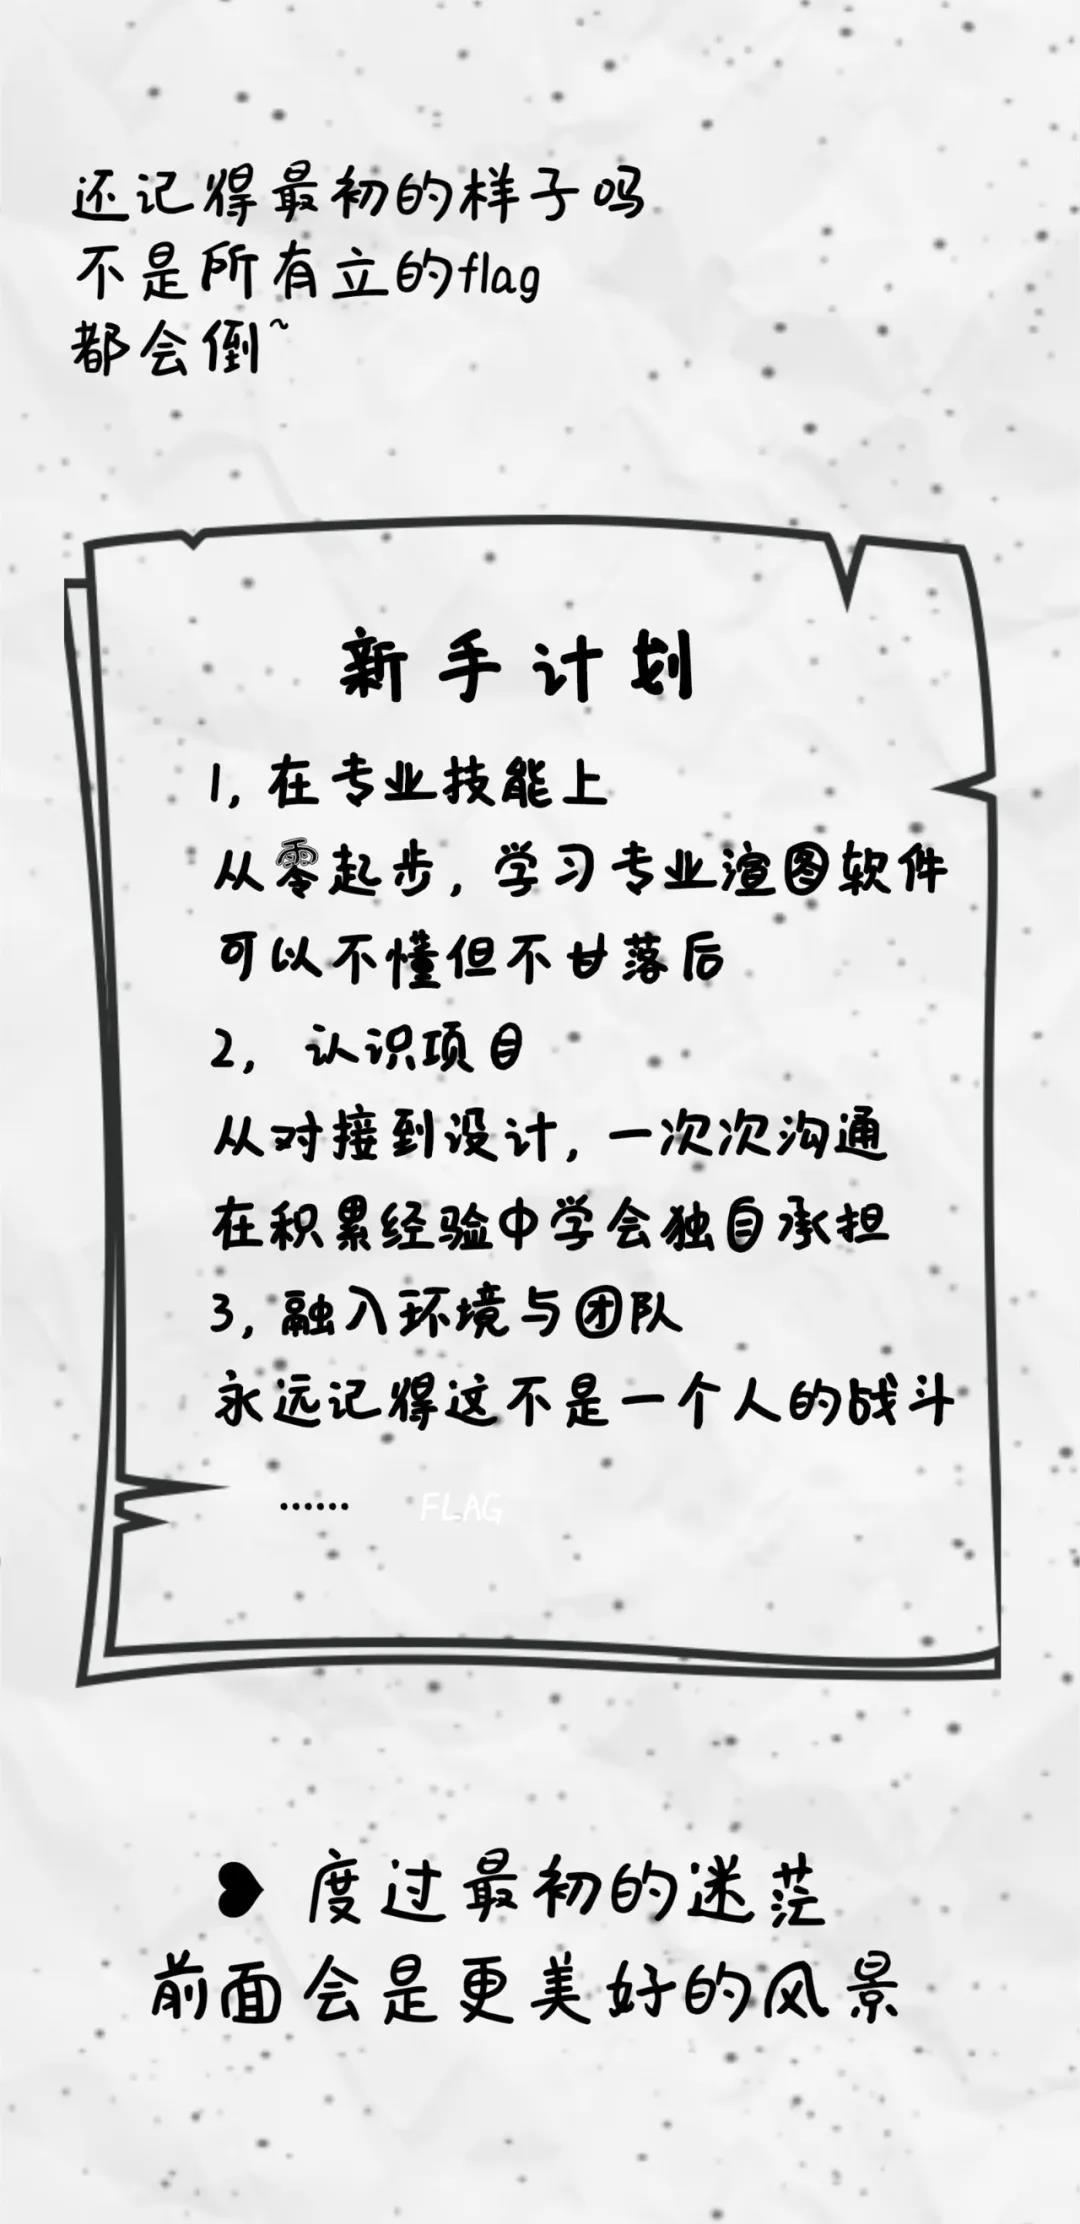 还记得最初的样子吗
不是所有立的flag
都会倒~
新手计划
1, 在专业技能上
从零起步, 学习专业渲图软件
可以不懂但不甘落后
2, 认识项目
从对接到设计, 一次次沟通
在积累经验中学会独自承担
3, 融入环境与团队
永远记得这不是一个人的战斗
...... FLAG
❥ 度过最初的迷茫
前面会是更美好的风景